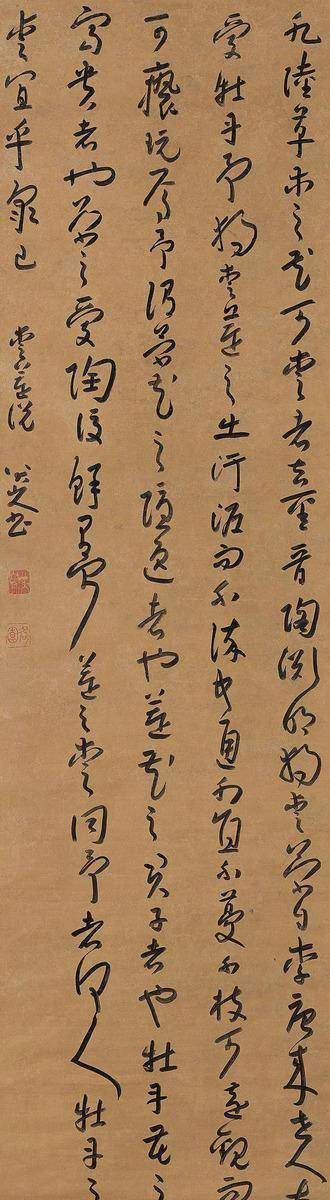 水陸草木之花可愛者甚蕃晉陶淵明獨愛菊自李唐來世人甚
愛牡丹予獨愛蓮之出淤泥而不染中通外直不蔓不枝可遠觀而
可褻玩焉予謂菊花之隱逸者也蓮花之君子者也牡丹花之
富貴者也菊之愛陶後鮮有聞蓮之愛同予者何人牡丹之
愛宜乎衆已 愛蓮說 八大山人書